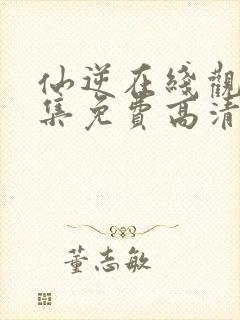 仙逆在綫觀
集免費高清
董志敏